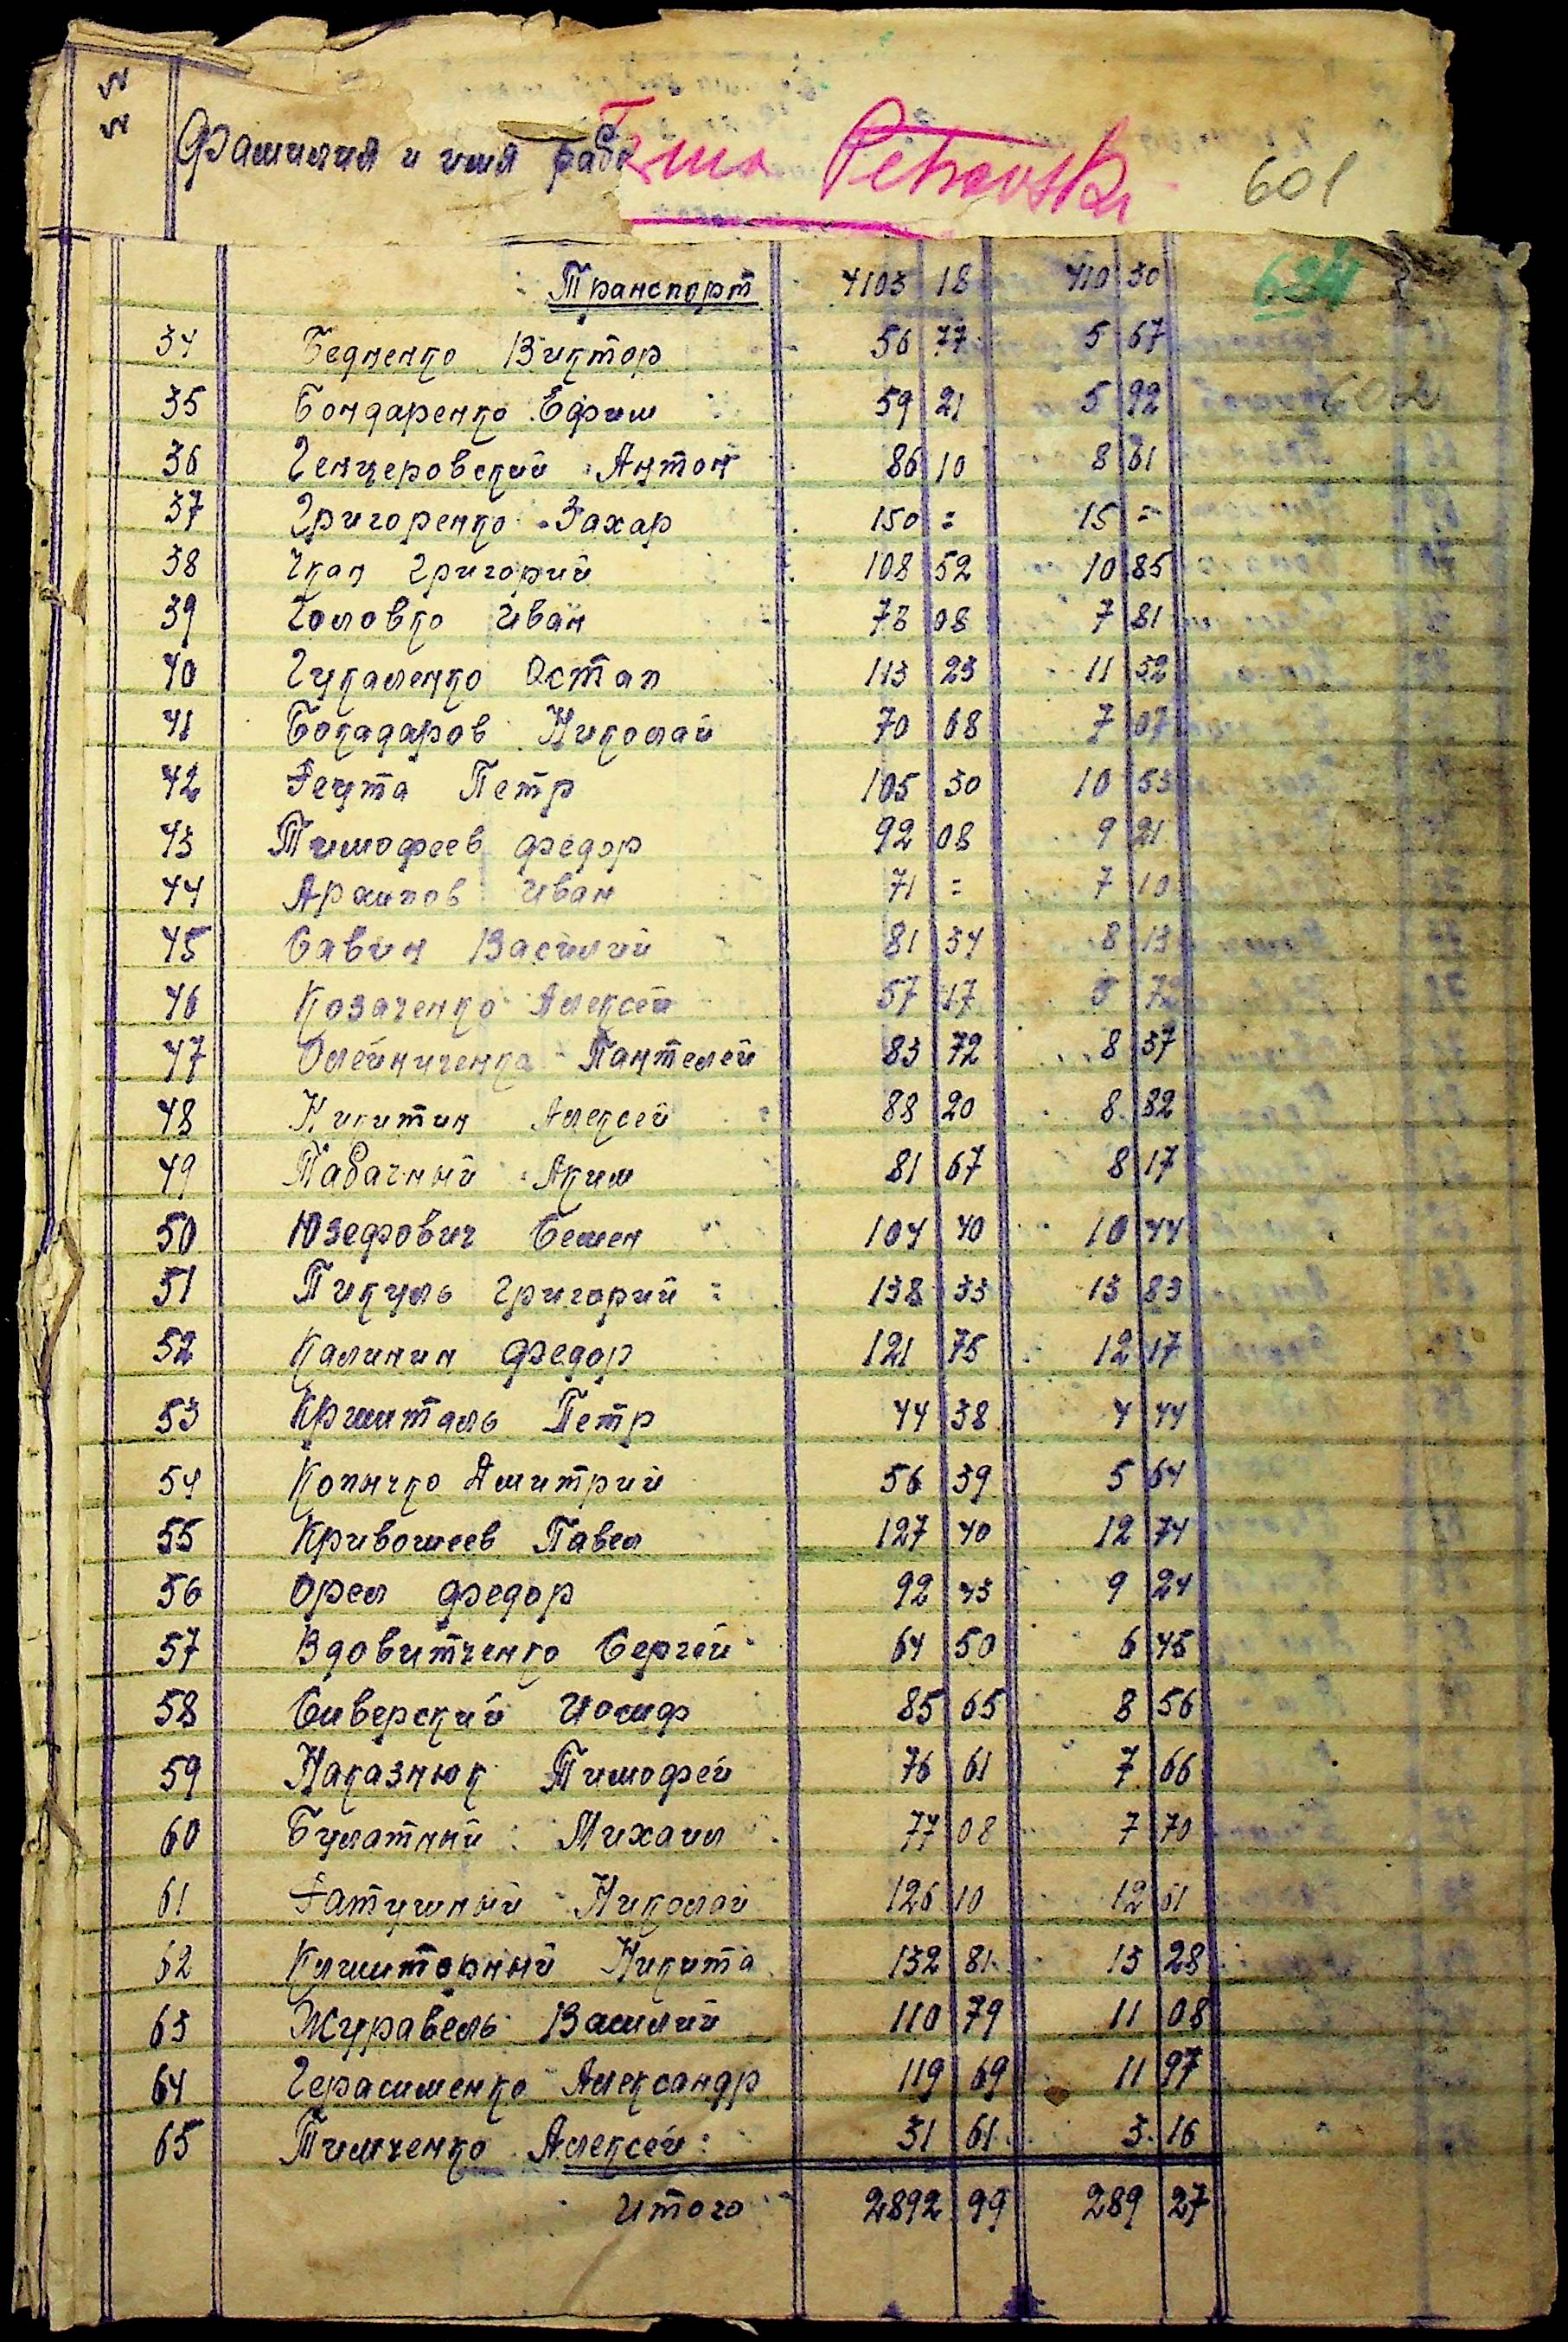 №
№
Фамилия и имя рабо
Petrovski
601
Транспорт 4103 18 410 30
634
34 Бедненко Виктор 56 77 5 67
35 Бондаренко Ефим 59 21 5 92
602
36 Генцеровский Антон 86 10 8 61
37 Григоренко Захар 150 = 15 =
38 Чкан Григорий 108 52 10 85
39 Головко Иван 78 08 7 81
40 Гукаленко Остап 113 23 11 32
41 Бокадаров Николай 70 68 7 07
42 Гецта Петр 105 30 10 53
43 Тимофеев Федор 92 08 9 21
44 Архипов Иван 71 = 7 10
45 Савин Василий 81 34 8 13
46 Козаченко Алексей 57 17 5 72
47 Олейниченко Пантелей 83 72 8 37
48 Никитин Алексей 88 20 8 82
49 Табачный Аким 81 67 8 17
50 Юзефович Семен 104 40 10 44
51 Пикуль Григорий 138 33 13 83
52 Калинин Федор 121 75 12 17
53 Кришталь Петр 44 38 4 44
54 Копычко Дмитрий 56 39 5 64
55 Кривошеев Павел 127 40 12 74
56 Орел Федор 92 43 9 24
57 Вдовитченко Сергей 64 50 6 45
58 Сиверский Иосиф 85 65 8 56
59 Наказнюк Тимофей 76 61 7 66
60 Булатный Михаил 77 08 7 70
61 Николай 126 10 12 61
62 Клишторный Никита 132 81 13 28
63 Журавель Василий 110 79 11 08
64 Герасименко Александр 119 69 11 97
65 Тимченко Алексей 31 61 3 16
Итого 2892 99 289 27